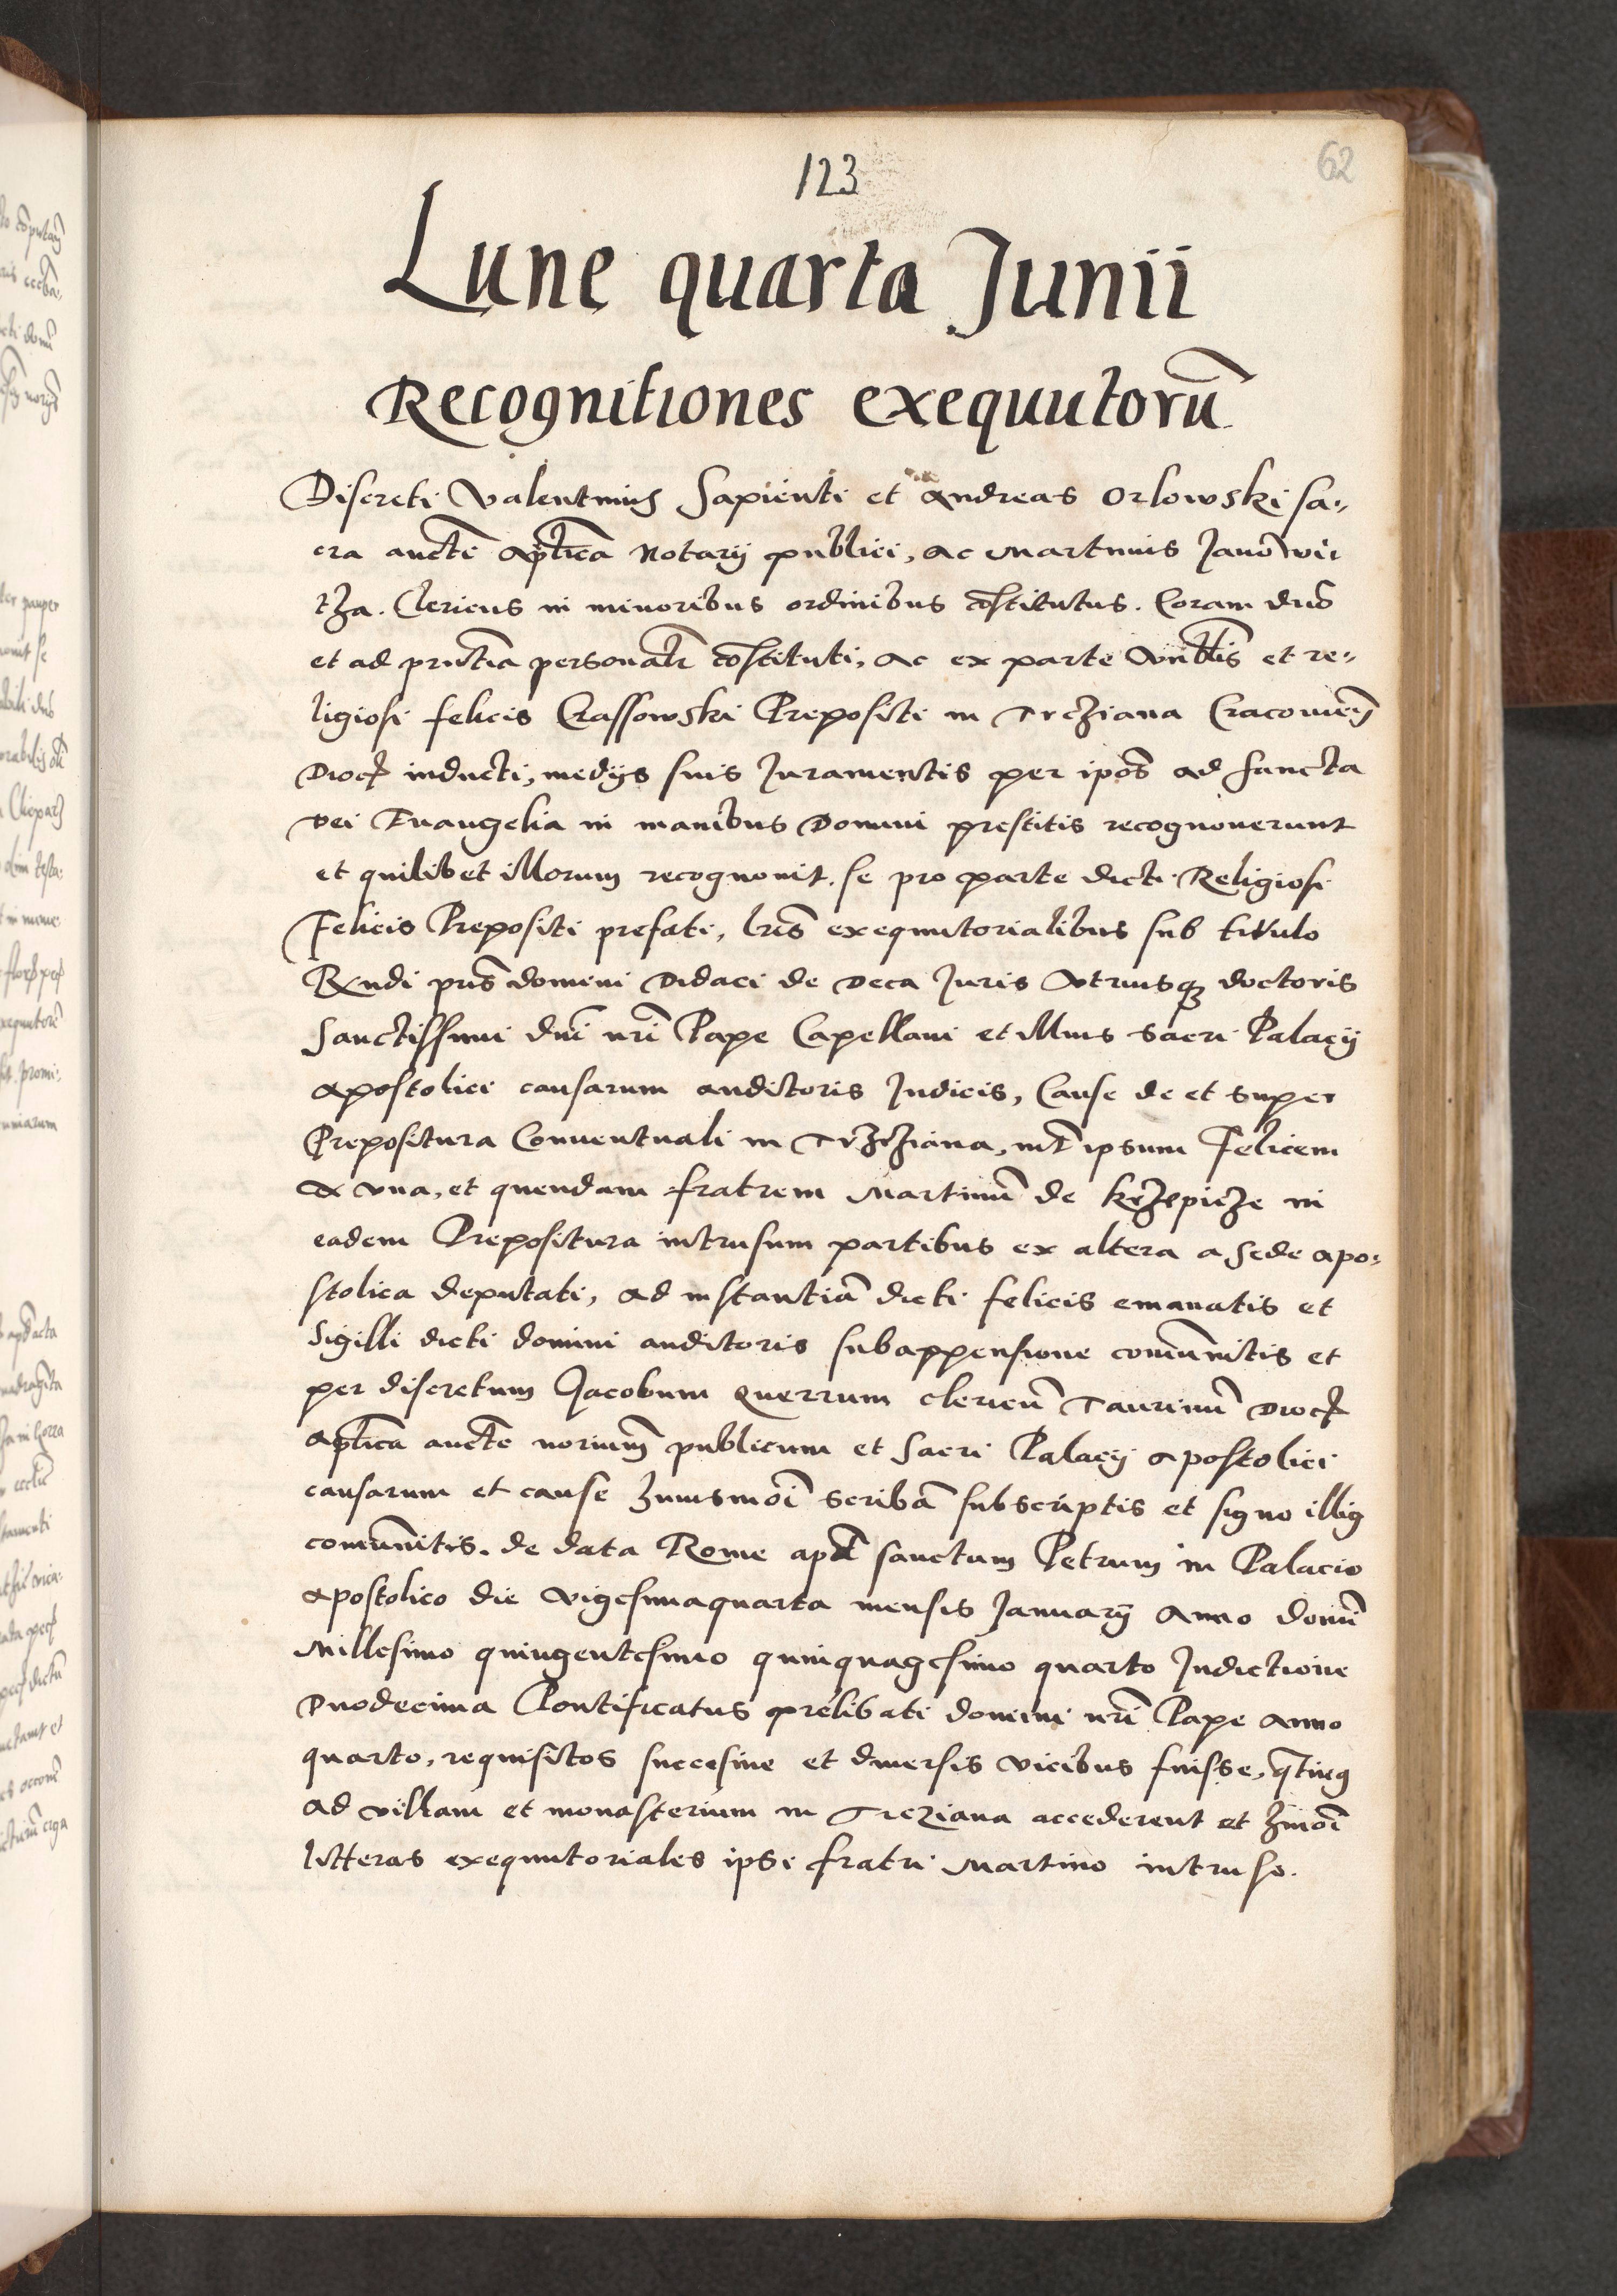 123
62
Lune quarta Junii
Recognitiones exequutorū
Discreti Valentinus Sapienti et Andreas Orlowski sa⸗
cra aucte aplica Notarij publici, ac Martinus Janowic
tza. Clericus in minoribus ordinibus cōstitutus. Coram dno
et ad pntia personalr cōstituti, ac ex parte Vnblis et re⸗
ligiosi felicis Crassowski Prepositi in Trcziana Cracouien
Dioc inducti, medijs suis Juramentis per ipos ad sancta
Dei Euangelia in manibus Domini prestitis recognouerunt
et quilibet illorum recognouit. se pro parte dicti Religiosi
Felicis Prepositi prefati, lris exequutorialibus sub titulo
Rndi pris domini Didaci de Deca Juris Vtriusq doctoris
Sanctissimi dni nri Pape Capellani et illius Sacri Palacij
apostolici causarum auditoris Judicis, Cause de et super
Prepositura Conuentuali in Trzcziana, int ipsum Felicem
ex vna, et quendam fratrem Martinū de krzepicze in
eadem Prepositura intrusum partibus ex altera a sede apo⸗
stolica deputati, ad instantiā dicti felicis emanatis et
Sigilli dicti domini auditoris subappensione comūnitis et
per discretum Jacobum Querrum clericū Taurinen Dioc
aplica aucte norium publicum et Sacri Palacij apostolici
causarum et cause huiusmoi scribā subscriptis et signo illius
comunitis. de data Rome apd sanctum Petrum in Palacio
apostolico die vigesimaquarta mensis Januarij Anno domi
Millesimo quingentesimo quinquagesimo quarto Indictione
Duodecima Pontificatus prelibati domini nri Pape anno
quarto, requisitos succesiue et diuersis vicibus fuisse, qtinus
ad villam et monasterium in Trcziana accederent et hmoi
litteras exequutoriales ipsi fratri Martino intruso.